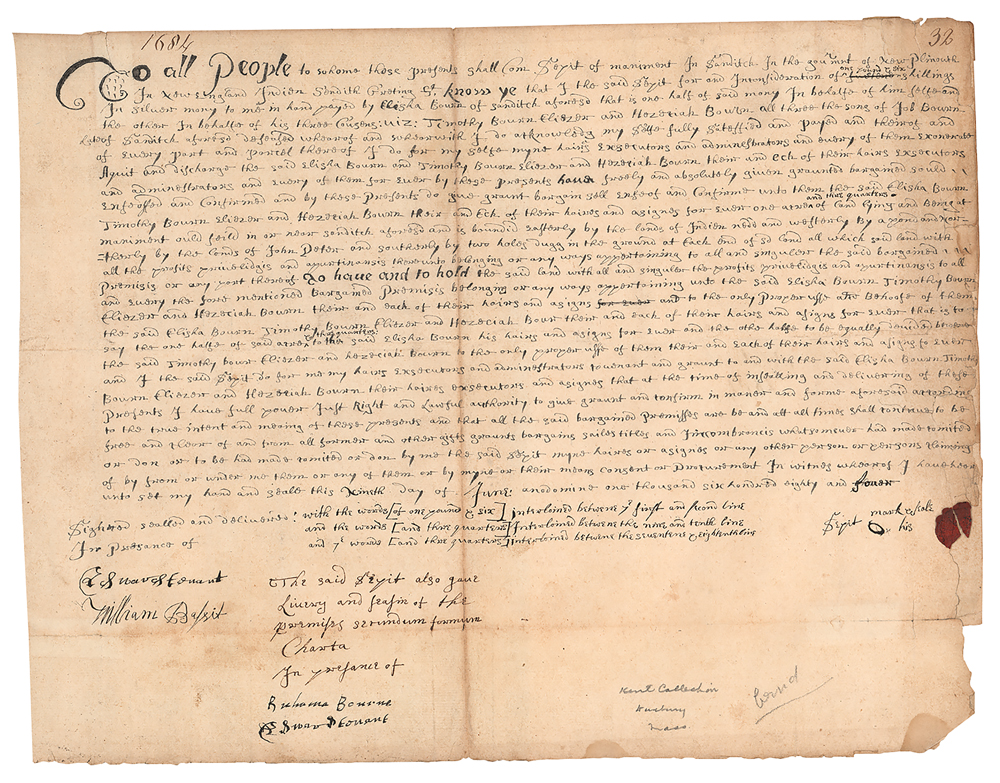 1684
32
To all People to whome these Presents shall Com Seyit of maniment In Sanditch In the goverment of New Plimouth
In New England Indien Sendith Greeting &c know ye that I the said Seyit for and Inconsideration of shillings
one pound & six
In silver mony to me in hand payed by Elisha Bourn of sanditch aforesd that is one half of said mony In behalfe of him selfe and
the other In behalfe of his three Cusens: viz: Timothy Bourn Eliezer and Hezeciah Bourn all three the sons of Job Bourn
Late of Sanditch aforesd defected whearof and whearwith I do acknowledg my selfe fully sattesfied and Payed and theirof and
of Every Part and Parcel thereof I do for my selfe myne hairs Exsecutors and adminestrators and every of them Exonerate
Aquit and discharge the said Elisha Bourn and Timothy Bourn Eliezer and Hezeciah Bourn their and Ech of their hairs Exsecutors
and adminestrators and Every of them for Ever by these Presents have freely and absolutely given graunted bargained sould
Enfeoffed and Confirmed and by these Presents do give grant bargain sell Enfeof and Confirme unto them the said Elisha Bourn
and thre quarters
Timothy Bourn Eliezer and Hezeciah Bourn their and Ech of their haires and asignes for Ever one acre of land lying and Being at
maniment ould feild in or near sanditch aforesd and is bounded easterly by the lands of Indien nedd and westerly By a pond and Nor
=therly by the lands of John Peter and southerly by two holes dugg in the ground at Each End of sd land all which said land with
all the profits priveledgis and apurtinansis thereunto belonging or any ways appertaining to all and singuler the said bargained
Premisis or any part thereof To have and to hold the said land with all and singuler the profits priveledgis and apurtinansis to all
and Every the fore mentioned Bargained Premisis belonging or any ways appertaining unto the said Elisha Bourn Timothy Bourn
Eliezer and Hezeciah Bourn their and each of their hairs and asigns for ever and to the only Proper usse and Behoofe of them
the said Elisha Bourn Timothy Bourn Eliezer and Hezeciah Bour their and each of their hairs and asigns for Ever that is to
& thre quarters
say the one halfe of said acre to the said Elisha Bourn his hairs and asigns for Ever and the othe halfe to be equally devided between
the said Timothy bour Eliezer and hezeciah Bourn to the only proper usse of them their and Each of their hairs and asigns to Ever
and I the said Seyit do for me my hairs Exsecutors and adminestrators covenant and graunt to and with the said Elisha Bourn Timothy
Bourn Eliezer and Hezeciah Bourn their haires exsecutors and asignes that at the time of insealling and delivering of these
Presents I have full power Just Right and Lawful authority to give graunt and confirm in maner and forme aforesaid according
to the true intent and mening of these presents and that all the said bargained Premisses are be and att all times shall continue to be
free and Cleer of and from all former and other gifts graunts bargins sailes titles and Incombrancis whatsomever had made comited
or don or to be had made comited or don by me the said Seyit myne haires or asignes or any other person or persons claiming
of by from or under me them or any of them or by myne or their means consent or Procurement In witnes whearof I have heer
unto set my hand and seale this Nineth day of June: anodomine one thousand six hundred eighty and fouer
Sighned sealled and delivered:
In Presance of
with the words [of one pound & six] Interlined between ye first and second line
and the words [and thre quarters] Interlined between the nine and tenth line
and ye words [and thre quarters] interlined betwene the seventene & eightenth line
Seyit his mark & seale
Edward Stonant
William Bassit
The said Seyit also gave
Livery and seasin of the
premises secundum formum
Charta
In presance of
Ruhama Bourne
Edward Stonant
Kent Collection
Duxbury
Mass